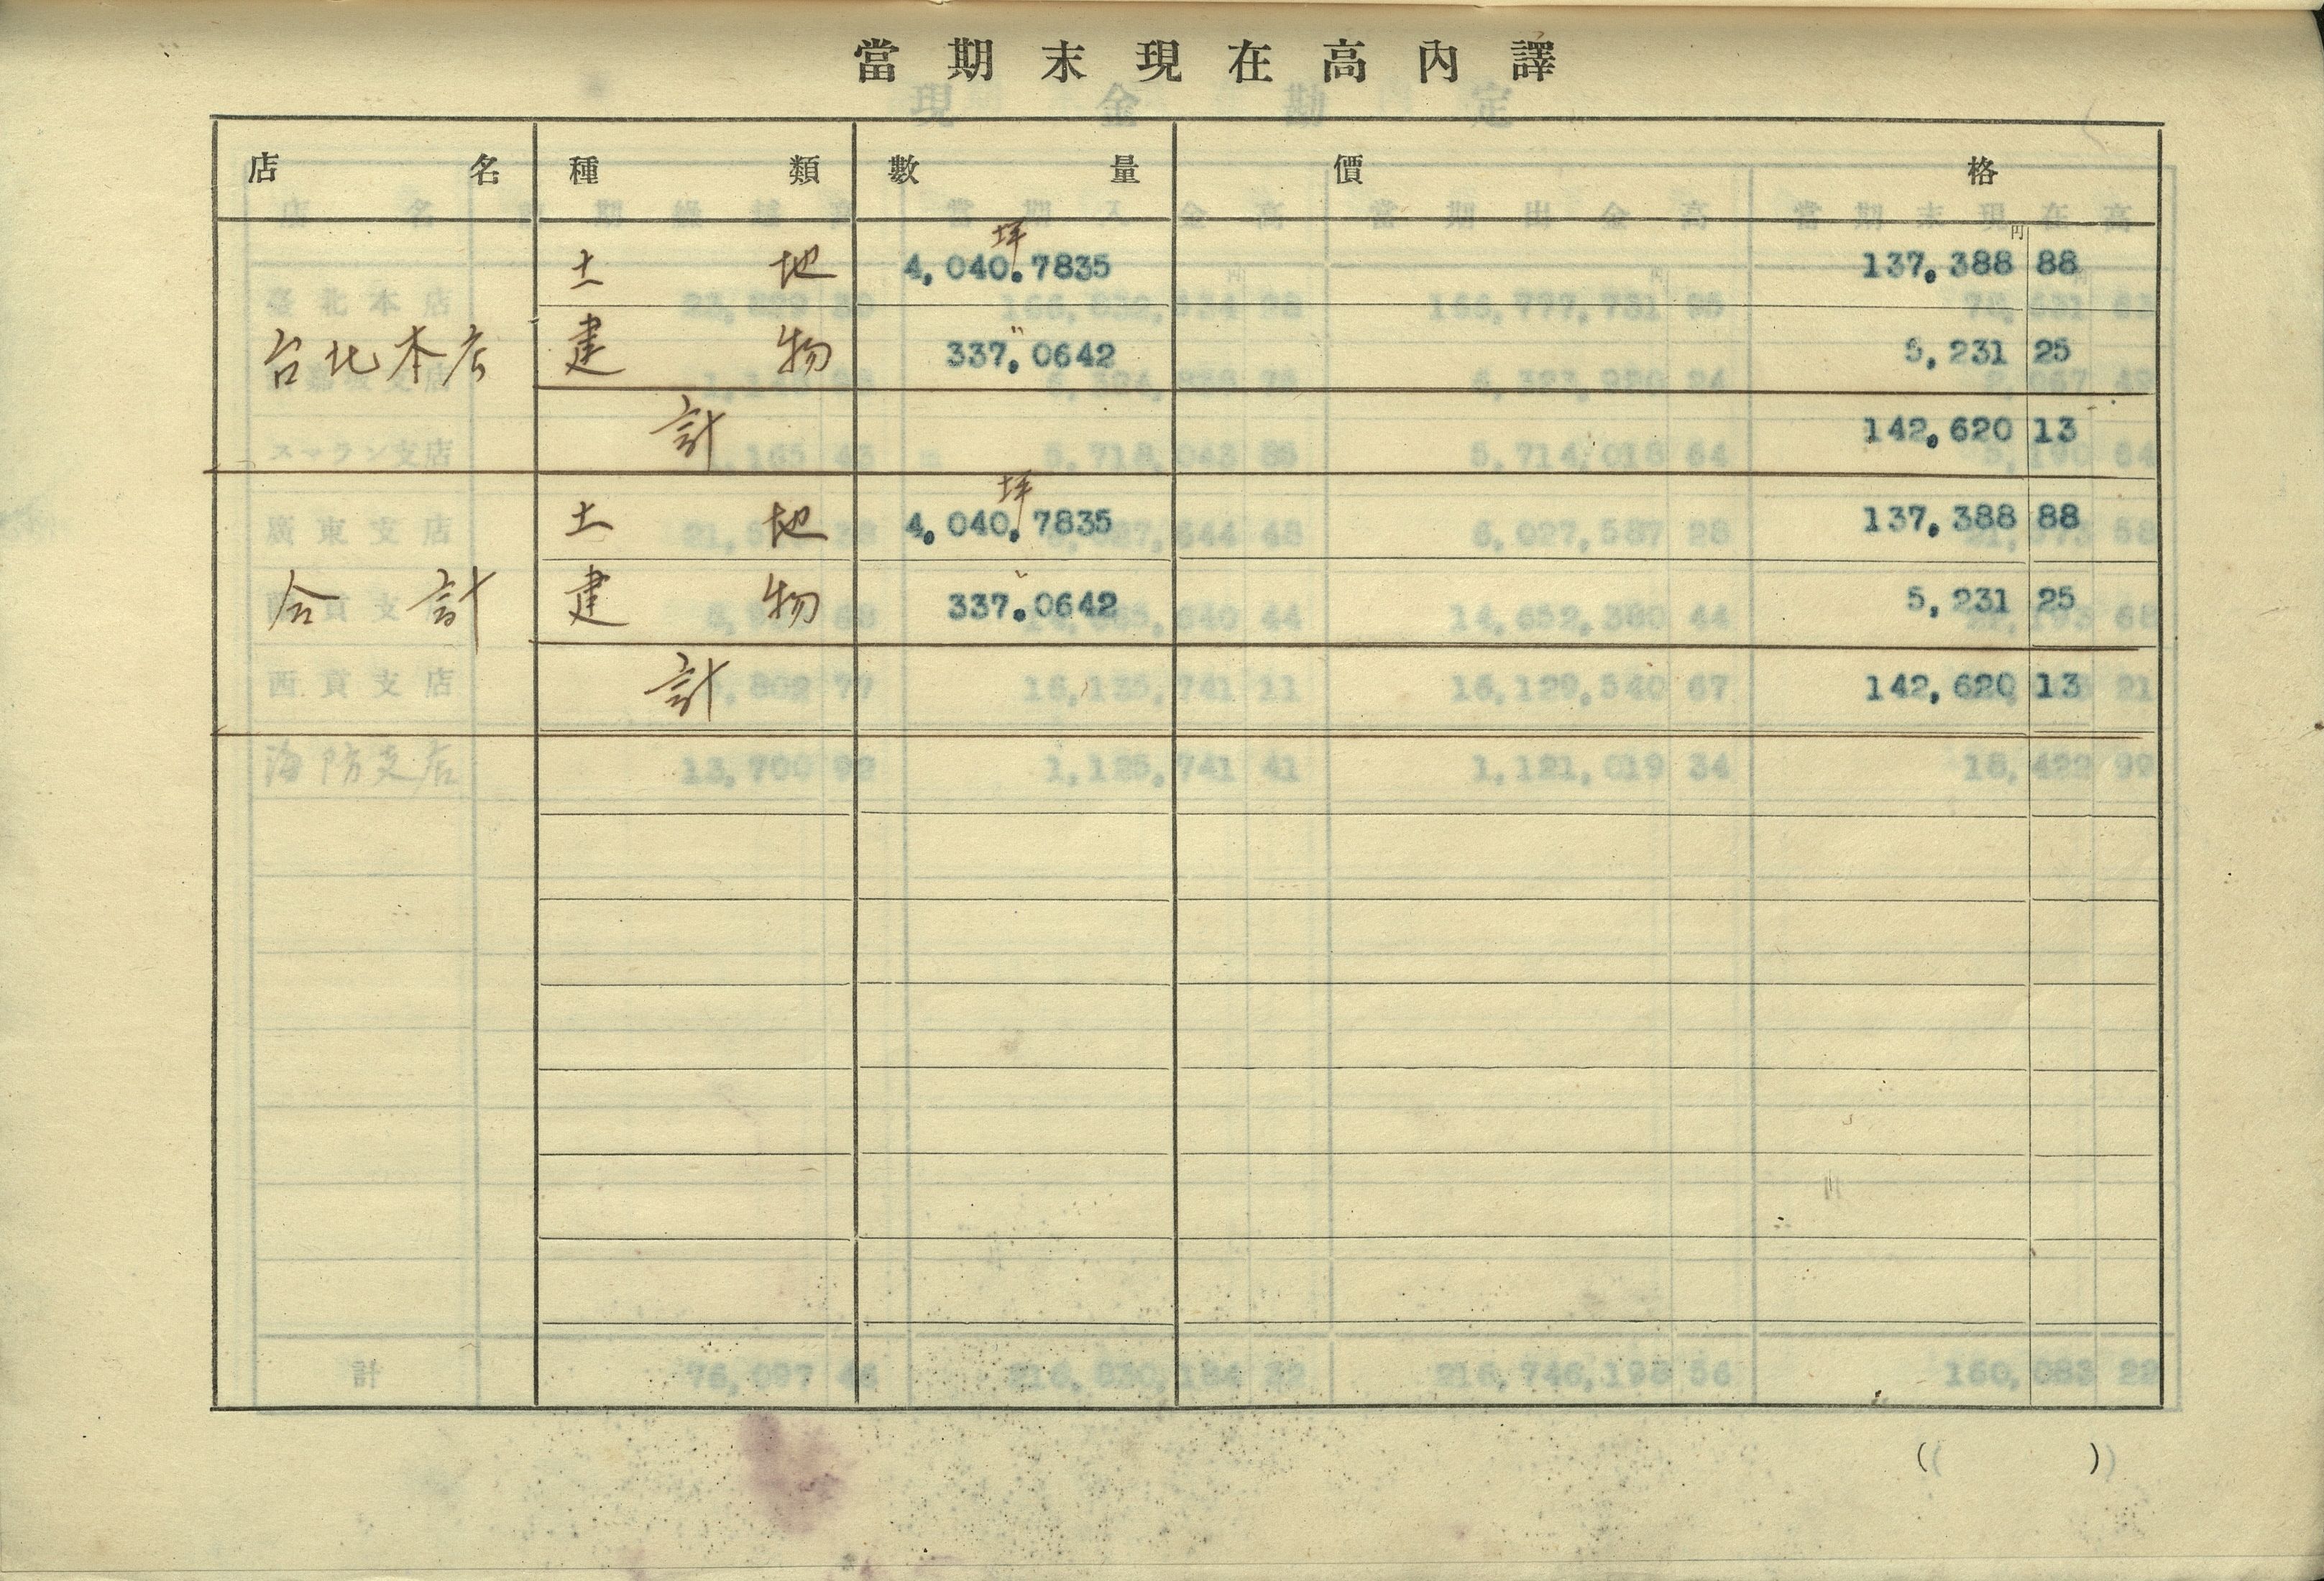 當期末現在高內譯
店名 種類 數量 價格
坪 円
土地 4,040.7835 137,388 88
台北本店 建物 〃 337.0642 5,231 25
計 142,620 13
坪
土地 4,040.7835 137,388 88
合計 建物 〃 337.0642 5,231 25
計 142,620 13
( )